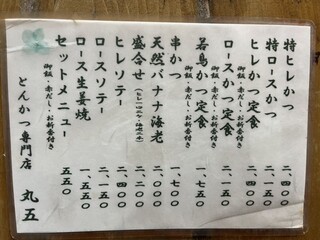 特ヒレかつ 二、四〇〇
特ロースかつ 二、一五〇
ヒレかつ定食 二、四〇〇
御飯・赤だし・お新香付き
ロースかつ定食 二、一五〇
御飯・赤だし・お新香付き
若鳥かつ定食 一、七五〇
御飯・赤だし・お新香付き
串かつ 一、七〇〇
天然バナナ海老 二、四〇〇
盛合せ 二、二〇〇
ヒレソテー 二、四〇〇
ロースソテー 二、一五〇
ロース生姜焼 一、五五〇
セットメニュー 五五〇
御飯・赤だし・お新香付き
とんかつ専門店 丸五